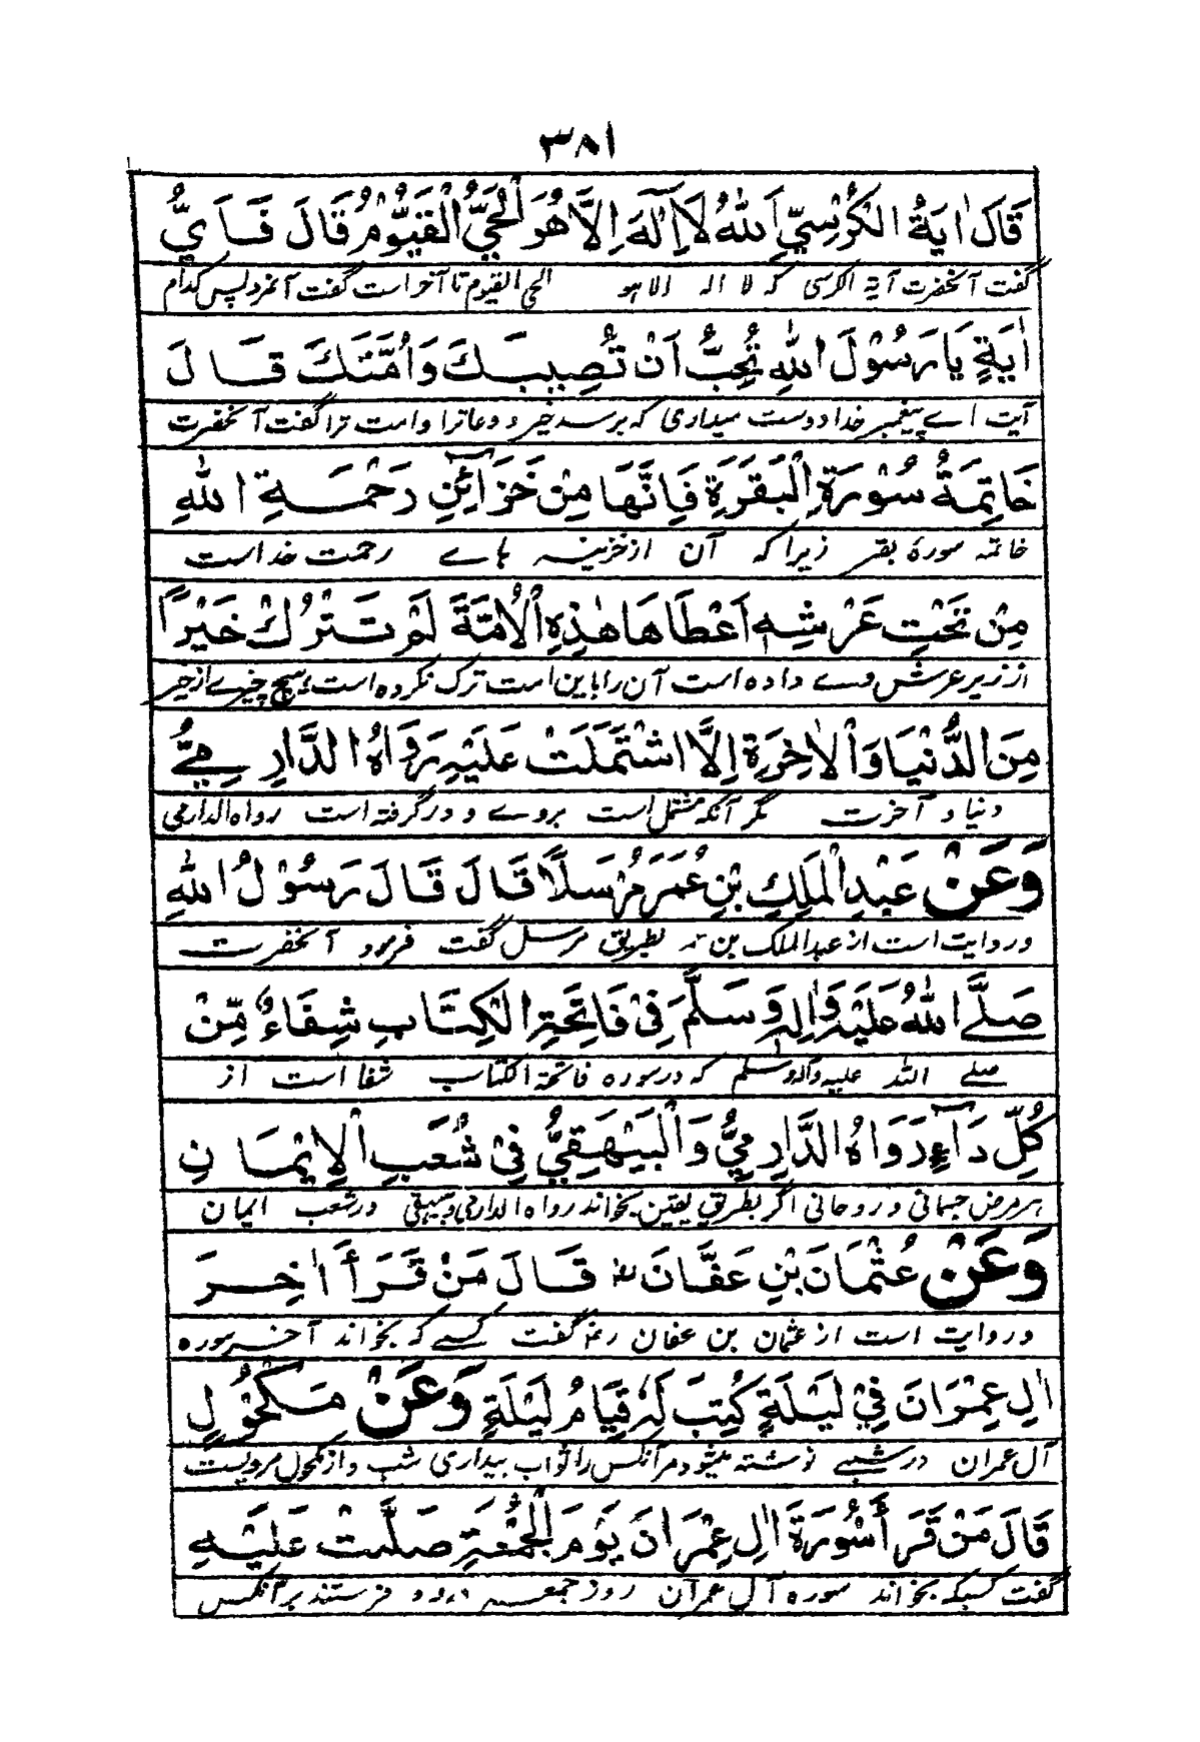 ۳۸۱
قَالَ اٰيَةُ الْكُرْسِيِّ اَللّٰهُ لَآ اِلٰهَ اِلَّا هُوَ الْحَيُّ الْقَيُّوْمُ قَالَ فَاَيُّ
گفت آنحضرت آیة الکرسی که لا اله الا هو الحی القیوم تا آخر است گفت آنمرد پس کدام
اٰيَةٍ يَا رَسُوْلَ اللهِ تُحِبُّ اَنْ تُصِيْبَكَ وَاُمَّتَكَ قَالَ
آیت اے پیغمبر خدا دوست میداری که برسد خیر و دعا ترا و امت ترا گفت آنحضرت
خَاتِمَةُ سُوْرَةِ الْبَقَرَةِ فَاِنَّهَا مِنْ خَزَآئِنِ رَحْمَةِ اللهِ
خاتمه سورۀ بقر زیرا که آن از خزینه هاے رحمت خداست
مِنْ تَحْتِ عَرْشِهٖ اَعْطَاهَا هٰذِهِ الْاُمَّةَ لَمْ تَتْرُكْ خَيْرًا
از زیر عرش وے داده است آن را باین امت ترک نکرده است هیچ چیزے از خیر
مِنَ الدُّنْيَا وَالْاٰخِرَةِ اِلَّا اشْتَمَلَتْ عَلَيْهِ رَوَاهُ الدَّارِمِيُّ
دنیا و آخرت مگر آنکه مشتمل است بروے و درگرفته است رواه الدارمی
وَعَنْ عَبْدِ الْمَلِكِ بْنِ عُمَرَ مُرْسَلًا قَالَ قَالَ رَسُوْلُ اللهِ
و روایت است از عبدالملک بن بطریق مرسل گفت فرمود آنحضرت
صَلَّے اللهُ عَلَيْهِ وَاٰلِهٖ وَسَلَّمَ فِيْ فَاتِحَةِ الْكِتَابِ شِفَاءٌ مِّنْ
صلے الله علیه وآله وسلم که در سوره فاتحة الکتاب شفا است از
كُلِّ دَآءٍ رَوَاهُ الدَّارِمِيُّ وَالْبَيْهَقِيُّ فِيْ شُعَبِ الْاِيْمَانِ
هر مرض جسمانی و روحانی اگر بطریق یقین بخواند رواه الدارمی و بیهقی در شعب ایمان
وَعَنْ عُثْمَانَ بْنِ عَفَّانَ رض قَالَ مَنْ قَرَأَ اٰخِرَ
و روایت است از عثمان بن عفان رض گفت کسے که بخواند آخر سوره
اٰلِ عِمْرَانَ فِيْ لَيْلَةٍ كُتِبَ لَهٗ قِيَامُ لَيْلَةٍ وَعَنْ مَكْحُوْلٍ
آل عمران در شبے نوشته میشود مر آنکس را ثواب بیداری شب و از مکحول مرویست
قَالَ مَنْ قَرَأَ سُوْرَةَ اٰلِ عِمْرَانَ يَوْمَ الْجُمُعَةِ صَلَّتْ عَلَيْهِ
گفت کسیکه بخواند سوره آل عمران روز جمعه درود فرستند بر آنکس